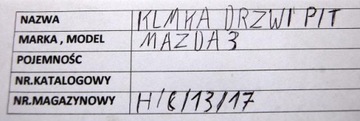 NAZWA KLMKA DRZWI P/T
MARKA , MODEL MAZDA 3
POJEMNOŚĆ
NR.KATALOGOWY
NR.MAGAZYNOWY H/C/13/17